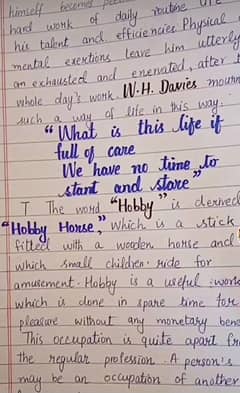 himself becomes
hard work of daily routine life
his talent and efficiencies Physical
mental exertions leave him utterly
an exhausted and enervated, after t
whole day's work W.H. Davies mourn
such a way of life in this way.
"What is this life if
full of care
We have no time to
stant and stare"
T The word "Hobby" is derived
"Hobby Horse," which is a stick
fitted with a wooden horse and
which small children ride for
amusement. Hobby is a useful work
which is done in spare time for
pleasure without any monetary bene
This occupation is quite apart fr
the regular profession. A person's
may be an occupation of another